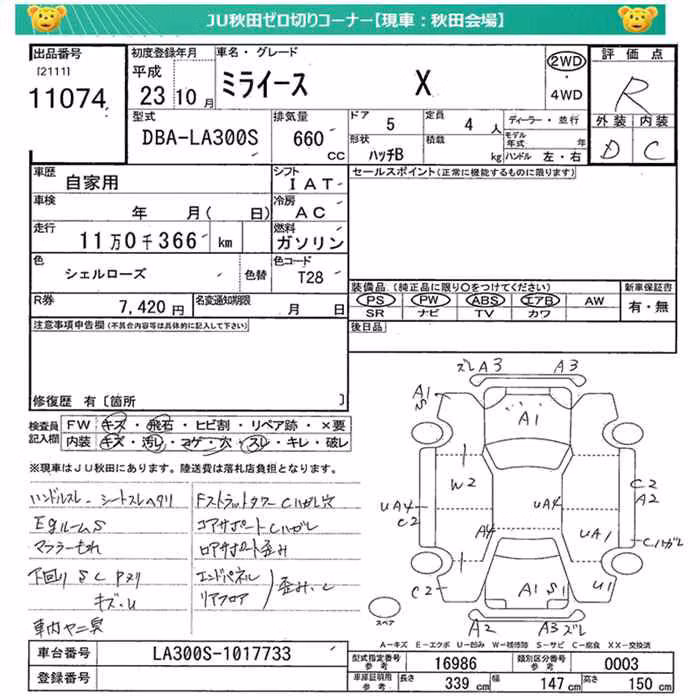 JU秋田ゼロ切りコーナー【現車：秋田会場】
出品番号 初度登録年月 車名・グレード 2WD ・ 4WD 評価点
[2111] 11074 平成 23年 10月 ミライース X R
型式 排気量 ドア 5 定員 4人 ディーラー・並行 外装 内装
DBA-LA300S 660 CC 形状 ハッチB 積載 kg モデル年式 年 ハンドル 左・右 D C
車歴 自家用 シフト IAT セールスポイント(正常に機能するものに限ります)
車検 年 月( 日) 冷房 AC
走行 11万0千366 km 燃料 ガソリン
色 シェルローズ 色替 色コード T28
装備品(純正品に限り○をつけてください) 新車保証書
R券 7,420円 名変通知期限 月 日 PS PW ABS エアB AW 有・無
SR ナビ TV カワ
注意事項申告欄(不具合内容等は具体的に記入して下さい) 後日品
修復歴 有〔箇所 〕
検査員記入欄 FW キズ・飛石・ヒビ割・リペア跡・×要
内装 キズ・汚レ・コゲ・穴・スレ・キレ・破レ
※現車はJU秋田にあります。陸送費は落札店負担となります。
ハンドルスレ シートスレヘタリ
EgルームS
マフラーもれ
下回り S C Pヌリ
キズ・U
車内ヤニ臭
Fストラットタワー Cハガレ穴
コアサポート Cハガレ
ロアサポート歪み
エンドパネル
リアフロア
歪み、C
ズレ A3 A3
A1 S
A1
W2
UA4 C2
UA4
C2 A2
A4
UA1 Cハガレ
C2
A1 S1
U1
A2 A3 ズレ
スペア
A-キズ E-エクボ U-凹み W-補修跡 S-サビ C-腐食 XX-交換済
車台番号 LA300S-1017733 型式指定番号 参考 16986 類別区分番号 参考 0003
登録番号 車庫証明用 参考 長さ 339 cm 幅 147 cm 高さ 150 cm